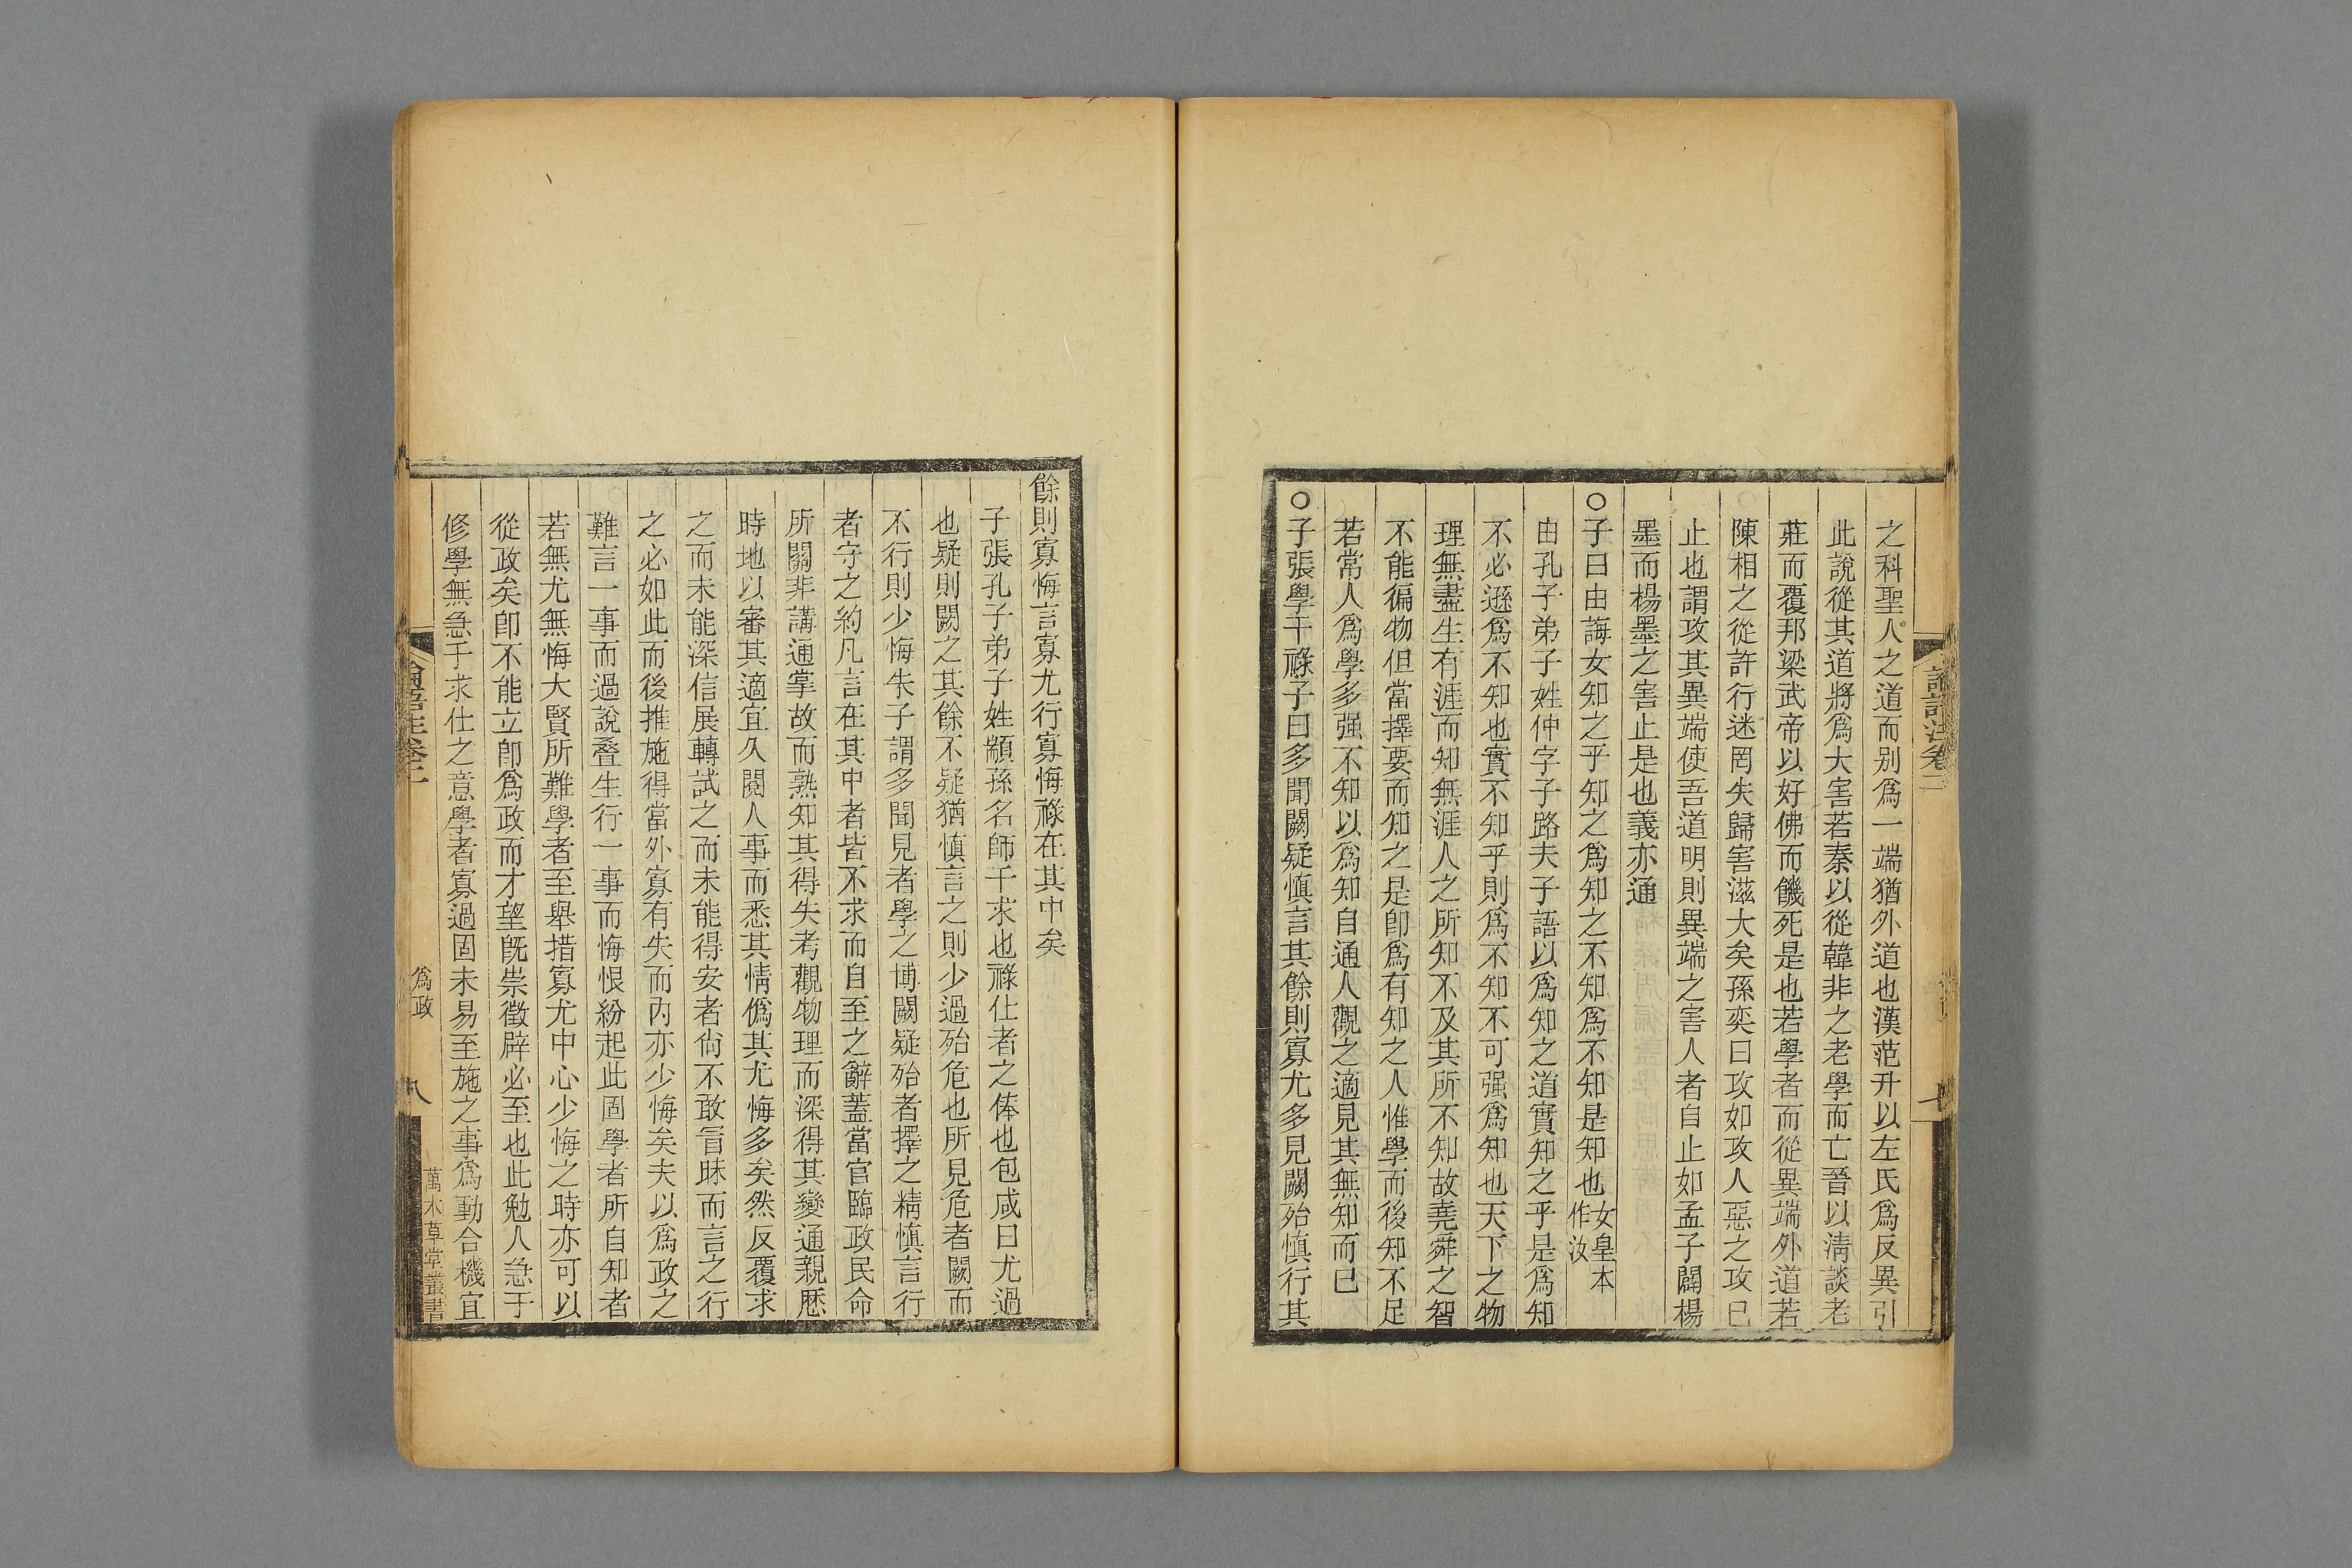 之科聖人之道而别爲一端猶外道也漢范升以左氏爲反異引
此說從其道將爲大害若秦以從韓非之老學而亡晉以淸談老
莊而覆邦梁武帝以好佛而饑死是也若學者而從異端外道若
陳相之從許行迷罔失歸害滋大矣孫奕曰攻如攻人惡之攻已
止也謂攻其異端使吾道明則異端之害人者自止如孟子闢楊
墨而楊墨之害止是也義亦通
○子曰由誨女知之乎知之爲知之不知爲不知是知也女皇本作汝
由孔子弟子姓仲字子路夫子語以爲知之道實知之乎是爲知
不必遜爲不知也實不知乎則爲不知不可强爲知也天下之物
理無盡生有涯而知無涯人之所知不及其所不知故堯舜之智
不能徧物但當擇要而知之是卽爲有知之人惟學而後知不足
若常人爲學多强不知以爲知自通人觀之適見其無知而已
○子張學干祿子曰多聞闕疑愼言其餘則寡尤多見闕殆愼行其
餘則寡悔言寡尤行寡悔祿在其中矣
子張孔子弟子姓顓孫名師干求也祿仕者之俸也包咸曰尤過
也疑則闕之其餘不疑猶愼言之則少過殆危也所見危者闕而
不行則少悔朱子謂多聞見者學之博闕疑殆者擇之精愼言行
者守之約凡言在其中者皆不求而自至之辭蓋當官臨政民命
所關非講通掌故而熟知其得失考觀物理而深得其變通親歷
時地以審其適宜久閱人事而悉其情僞其尤悔多矣然反覆求
之而未能深信展轉試之而未能得安者尙不敢冒昧而言之行
之必如此而後推施得當外寡有失而內亦少悔矣夫以爲政之
難言一事而過說叠生行一事而悔恨紛起此固學者所自知者
若無尤無悔大賢所難學者至舉措寡尤中心少悔之時亦可以
從政矣卽不能立卽爲政而才望旣崇徵辟必至也此勉人急于
修學無急于求仕之意學者寡過固未易至施之事爲動合機宜
論語注卷二
爲政
八
萬木草堂叢書